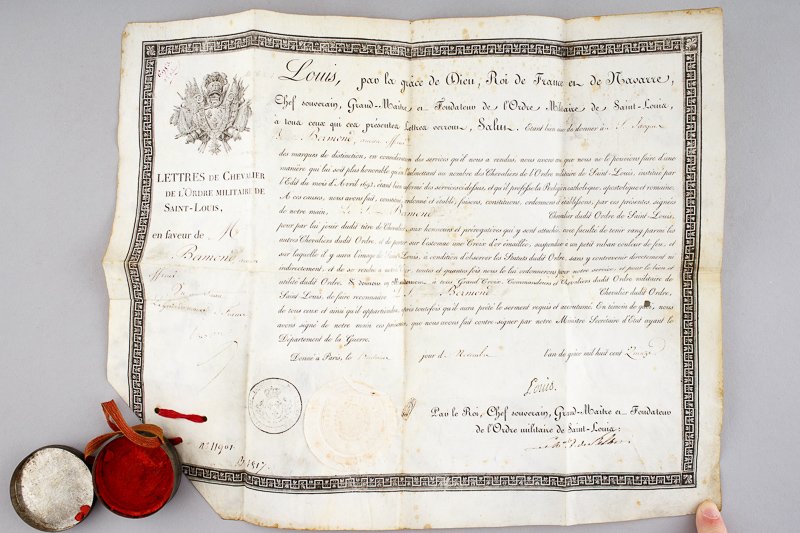 LETTRES DE CHEVALIER
DE L'ORDRE MILITAIRE DE
SAINT-LOUIS,
en faveur de M
Bermond
officier
Louis, par la grâce de Dieu, Roi de France et de Navarre,
Chef souverain, Grand-Maître et Fondateur de l'Ordre Militaire de Saint-Louis,
à tous ceux qui ces présentes Lettres verront, Salut. Étant bien aise de donner au S. Jacques
Bermond, ancien officier
des marques de distinction, en considération des services qu'il nous a rendus, nous avons cru que nous ne le pouvions faire d'une
manière qui lui soit plus honorable qu'en l'admettant au nombre des Chevaliers de l'Ordre militaire de Saint-Louis, institué par
l'Edit du mois d'Avril 1693, étant bien informé des services ci-dessus, et qu'il professe la Religion catholique, apostolique et romaine.
A ces causes, nous avons fait, constitué, ordonné et établi, faisons, constituons, ordonnons et établissons, par ces présentes signées
de notre main, le S. Bermond Chevalier dudit Ordre de Saint-Louis,
pour par lui jouir dudit titre de Chevalier, aux honneurs et prérogatives qui y sont attachés, avec faculté de tenir rang parmi les
autres Chevaliers dudit Ordre, et de porter sur l'estomac une Croix d'or émaillée, suspendue à un petit ruban couleur de feu, et
sur laquelle il y aura l'image de Saint-Louis, à condition d'observer les Statuts dudit Ordre, sans y contrevenir directement ni
indirectement, et de se rendre à notre toutes et quantes fois nous le lui ordonnerons pour notre service, et pour le bien et
utilité dudit Ordre. Si donnons en Mandement à tous Grand'Croix, Commandeurs et Chevaliers dudit Ordre militaire de
Saint-Louis, de faire reconnaître le S. Bermond Chevalier dudit Ordre,
de tous ceux et ainsi qu'il appartiendra, après toutefois qu'il aura prêté le serment requis et accoutumé. En témoin de quoi, nous
avons signé de notre main ces présentes, que nous avons fait contre-signer par notre Ministre Secrétaire d'État ayant le
Département de la Guerre.
Donné à Paris, le jour de l'an de grâce mil huit cent
Louis
Par le Roi, Chef souverain, Grand-Maître et Fondateur
de l'Ordre militaire de Saint-Louis:
N° 11901